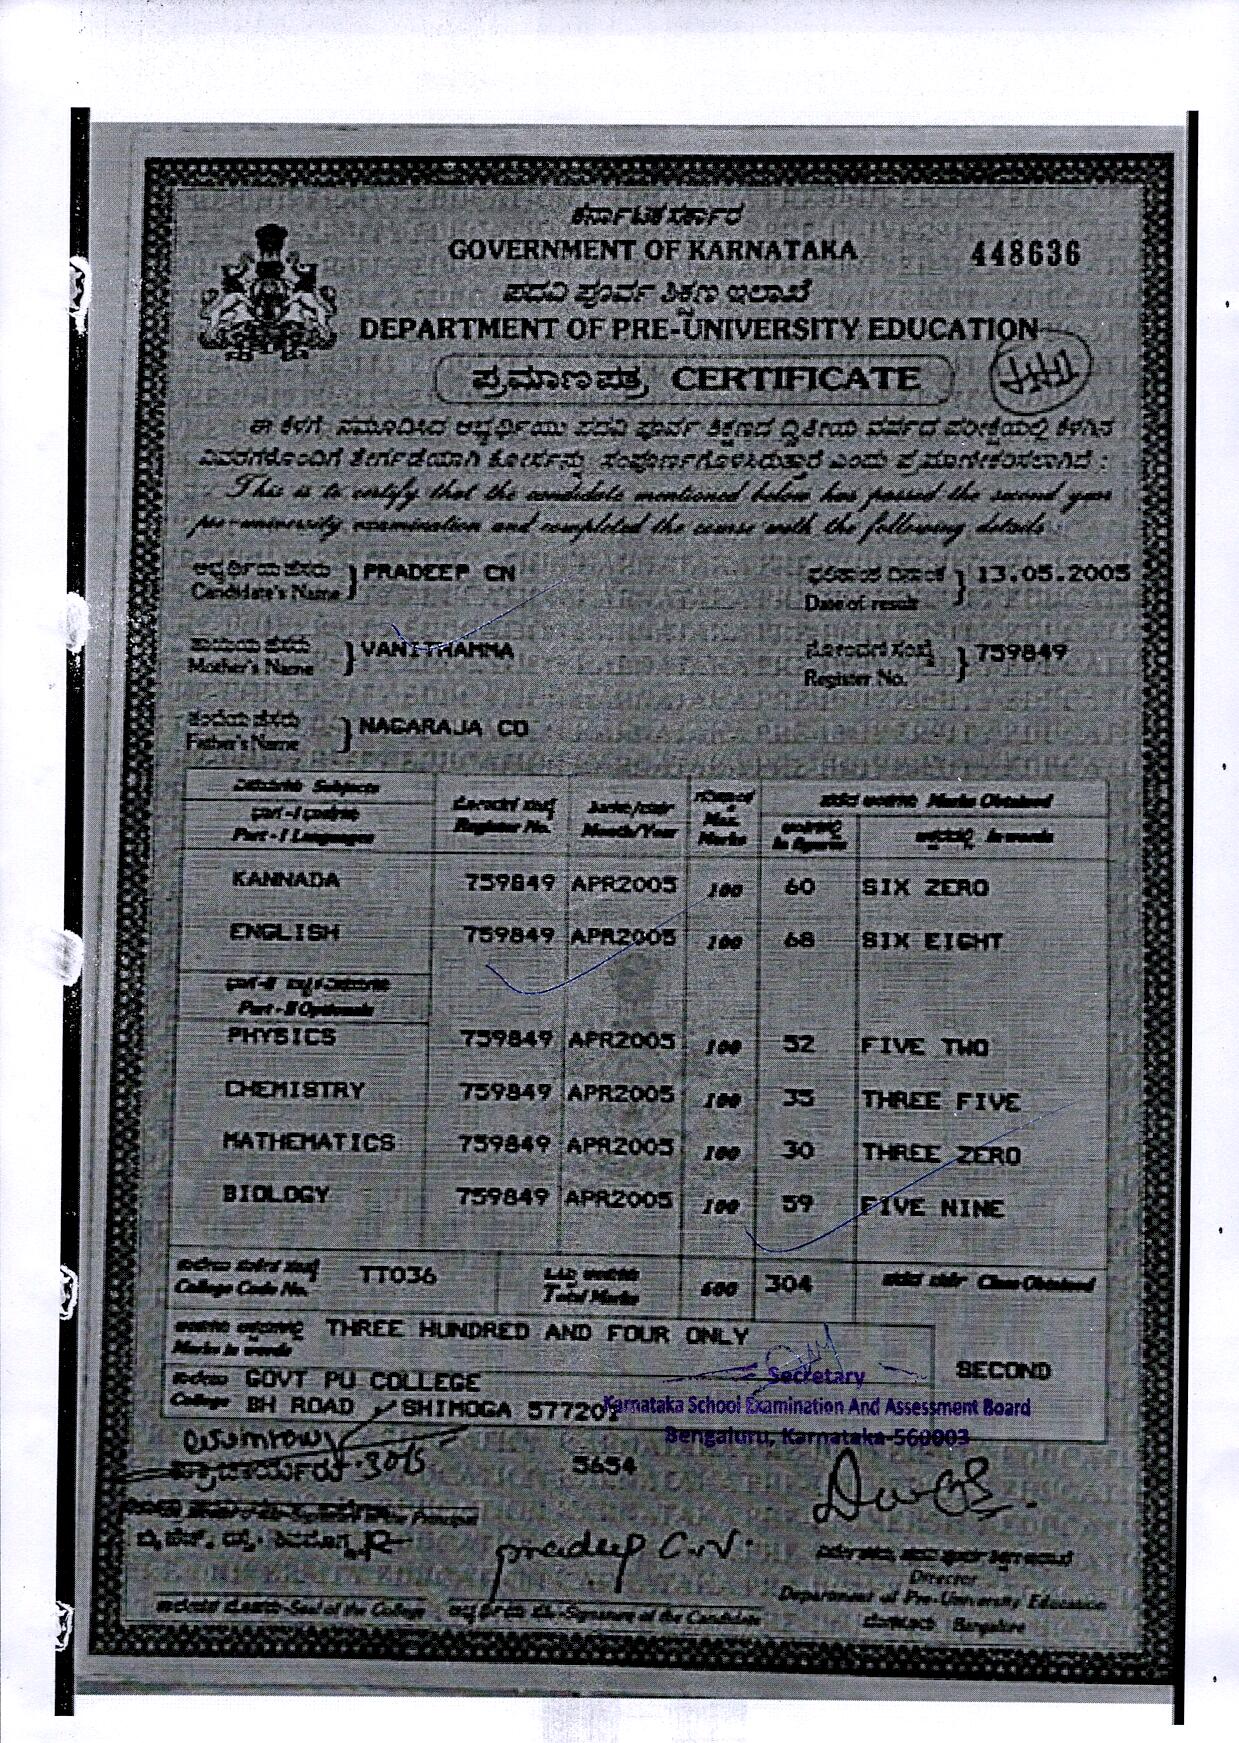 ಕರ್ನಾಟಕ ಸರ್ಕಾರ
GOVERNMENT OF KARNATAKA
448636
ಪದವಿ ಪೂರ್ವ ಶಿಕ್ಷಣ ಇಲಾಖೆ
DEPARTMENT OF PRE-UNIVERSITY EDUCATION
ಪ್ರಮಾಣ ಪತ್ರ CERTIFICATE
ಈ ಕೆಳಗೆ ನಮೂದಿಸಿದ ಅಭ್ಯರ್ಥಿಯು ಪದವಿ ಪೂರ್ವ ಶಿಕ್ಷಣದ ದ್ವಿತೀಯ ವರ್ಷದ ಪರೀಕ್ಷೆಯಲ್ಲಿ ಕೆಳಗಿನ
ವಿವರಗಳೊಂದಿಗೆ ತೇರ್ಗಡೆಯಾಗಿ ಕೋರ್ಸನ್ನು ಸಂಪೂರ್ಣಗೊಳಿಸಿರುತ್ತಾರೆ ಎಂದು ಪ್ರಮಾಣೀಕರಿಸಲಾಗಿದೆ :
This is to certify that the candidate mentioned below has passed the second year
pre-university examination and completed the course with the following details :
ಅಭ್ಯರ್ಥಿಯ ಹೆಸರು
Candidate's Name } PRADEEP CN
ಫಲಿತಾಂಶ ದಿನಾಂಕ
Date of result } 13.05.2005
ತಾಯಿಯ ಹೆಸರು
Mother's Name } VANITHAMMA
ನೋಂದಣಿ ಸಂಖ್ಯೆ
Register No. } 759849
ತಂದೆಯ ಹೆಸರು
Father's Name } NAGARAJA CD
Subjects
Part - I Languages
ನೋಂದಣಿ ಸಂಖ್ಯೆ
Register No.
Month/Year
Max. Marks
Marks Obtained
In figures
In words
KANNADA 759849 APR2005 100 60 SIX ZERO
ENGLISH 759849 APR2005 100 68 SIX EIGHT
Part - II Optionals
PHYSICS 759849 APR2005 100 52 FIVE TWO
CHEMISTRY 759849 APR2005 100 35 THREE FIVE
MATHEMATICS 759849 APR2005 100 30 THREE ZERO
BIOLOGY 759849 APR2005 100 59 FIVE NINE
College Code No. TT036
Total Marks 600 304
Class Obtained
Marks in words THREE HUNDRED AND FOUR ONLY
SECOND
College GOVT PU COLLEGE
BH ROAD , SHIMOGA 577201
Secretary
Karnataka School Examination And Assessment Board
Bengaluru, Karnataka-560003
5654
pradeep C.N.
Director
Department of Pre-University Education
Bangalore
Seal of the College
Signature of the Candidate